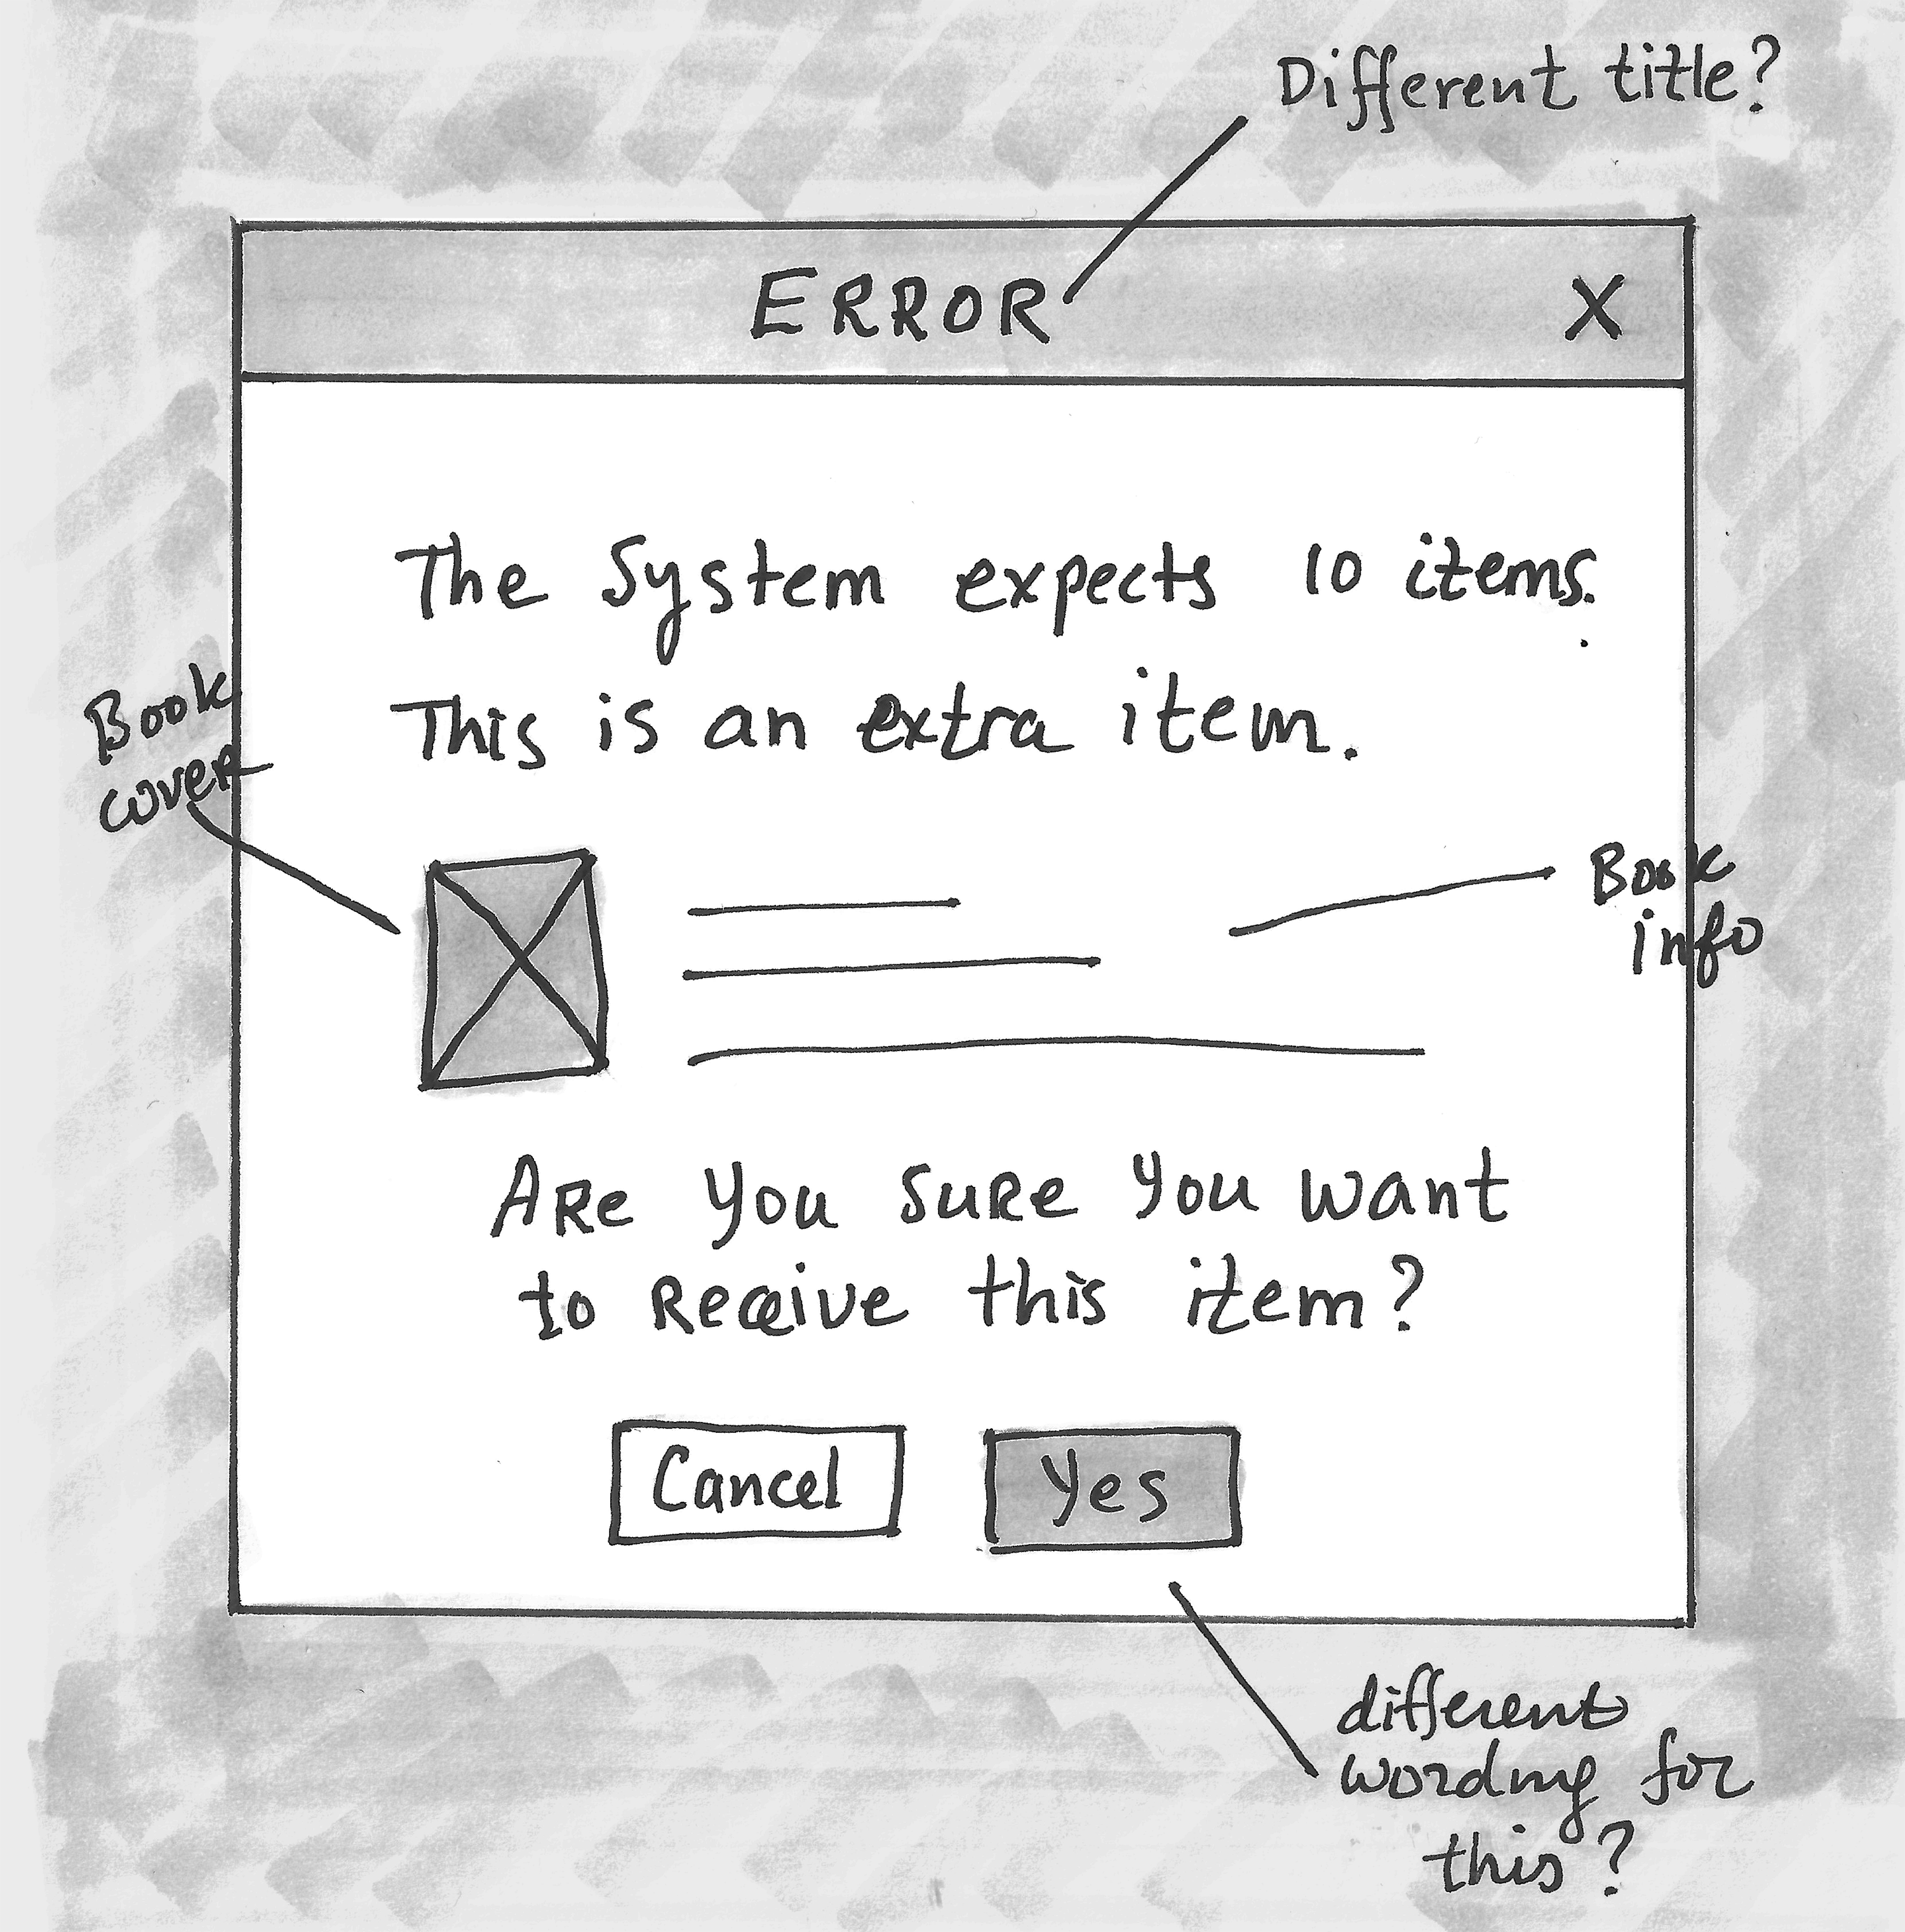 Different title?
ERROR X
The System expects 10 items.
This is an extra item.
Book
cover
Book
info
Are you sure you want
to Receive this item?
Cancel Yes
different
wording for
this?